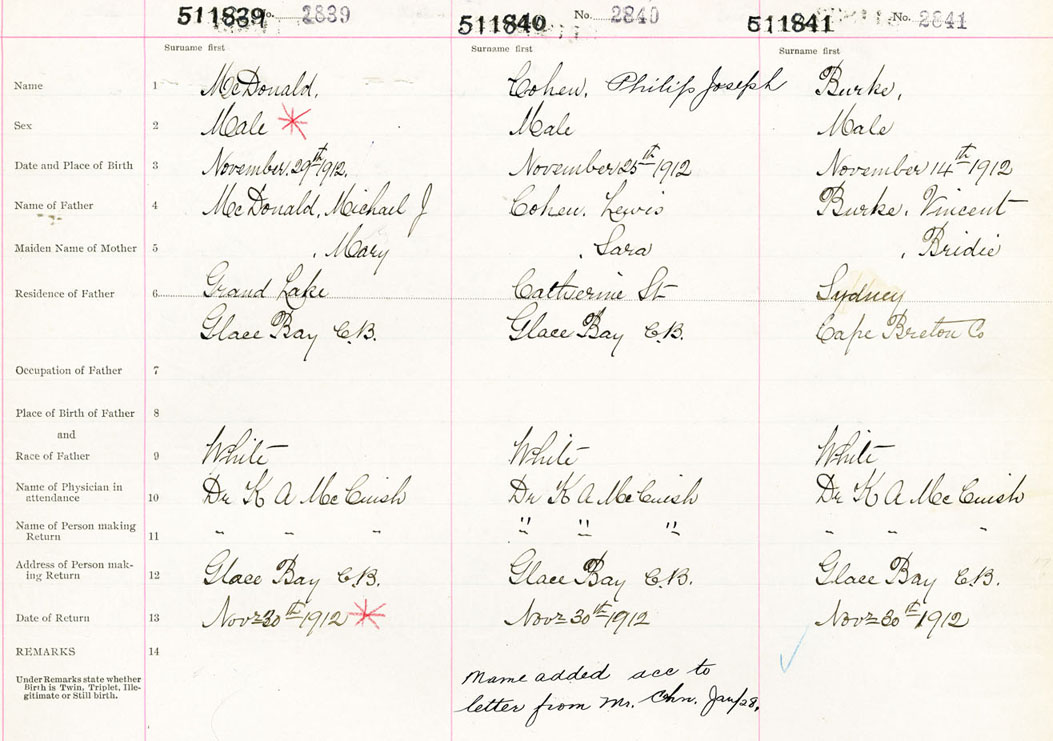 511839 No. 2839 511840 No. 2840 511841 No. 2841
Surname first Surname first Surname first
Name 1 McDonald, Cohen, Philip Joseph Burke,
Sex 2 Male Male Male
Date and Place of Birth 3 November 29th 1912, November 25th 1912 November 14th 1912
Name of Father 4 McDonald, Michael J Cohen, Lewis Burke, Vincent
Maiden Name of Mother 5 , Mary , Sara , Bridie
Residence of Father 6 Grand Lake Catherine St Sydney
Glace Bay C.B. Glace Bay C.B. Cape Breton Co
Occupation of Father 7
Place of Birth of Father 8
and
Race of Father 9 White White White
Name of Physician in
attendance 10 Dr K A McCuish Dr K A McCuish Dr K A McCuish
Name of Person making
Return 11 " " " " " " " " "
Address of Person mak-
ing Return 12 Glace Bay C.B. Glace Bay C.B. Glace Bay C.B.
Date of Return 13 Nov 30th 1912 Nov 30th 1912 Nov 30th 1912
REMARKS 14
Under Remarks state whether
Birth is Twin, Triplet, Ille-
gitimate or Still birth.
Name added acc to
letter from Mr. Jan/28,